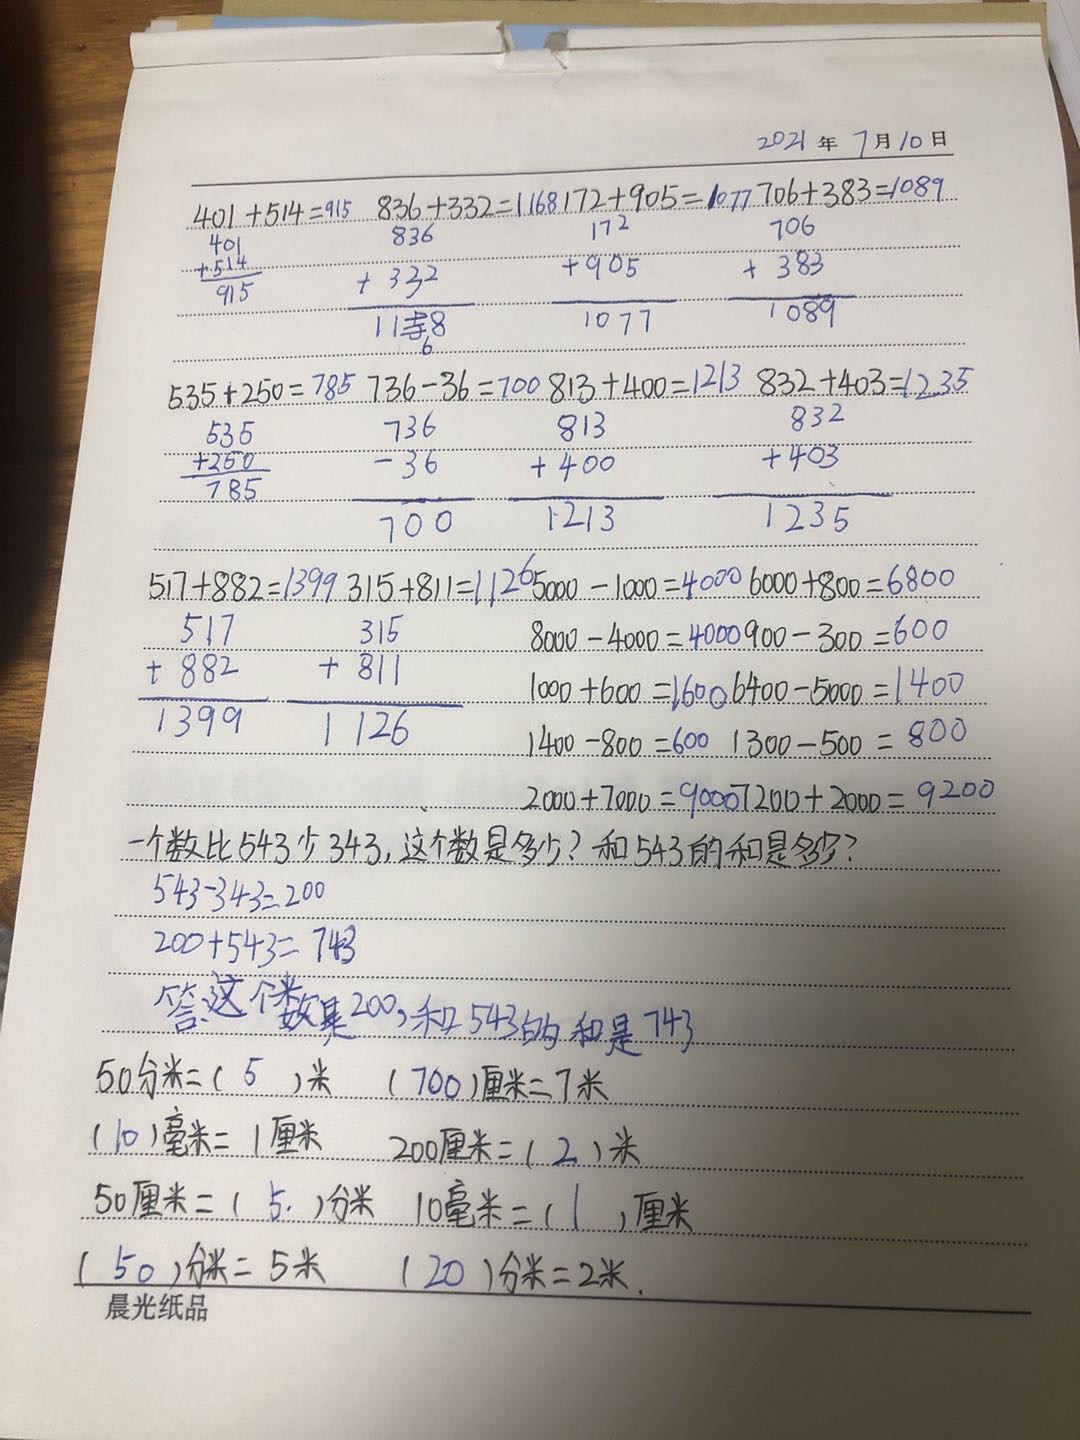 2021年7月10日
401+514=915 836+332=1168 172+905=1077 706+383=1089
401 836 172 706
+514 +332 +905 +383
915 1168 1077 1089
535+250=785 736-36=700 813+400=1213 832+403=1235
535 736 813 832
+250 -36 +400 +403
785 700 1213 1235
517+882=1399 315+811=1126 5000-1000=4000 6000+800=6800
517 315 8000-4000=4000 900-300=600
+882 +811 1000+600=1600 6400-5000=1400
1399 1126 1400-800=600 1300-500=800
2000+7000=9000 7200+2000=9200
一个数比543少343,这个数是多少?和543的和是多少?
543-343=200
200+543=743
答:这个数是200,和543的和是743
50分米=(5)米 (700)厘米=7米
(10)毫米=1厘米 200厘米=(2)米
50厘米=(5.)分米 10毫米=(1)厘米
(50)分米=5米 (20)分米=2米.
晨光纸品